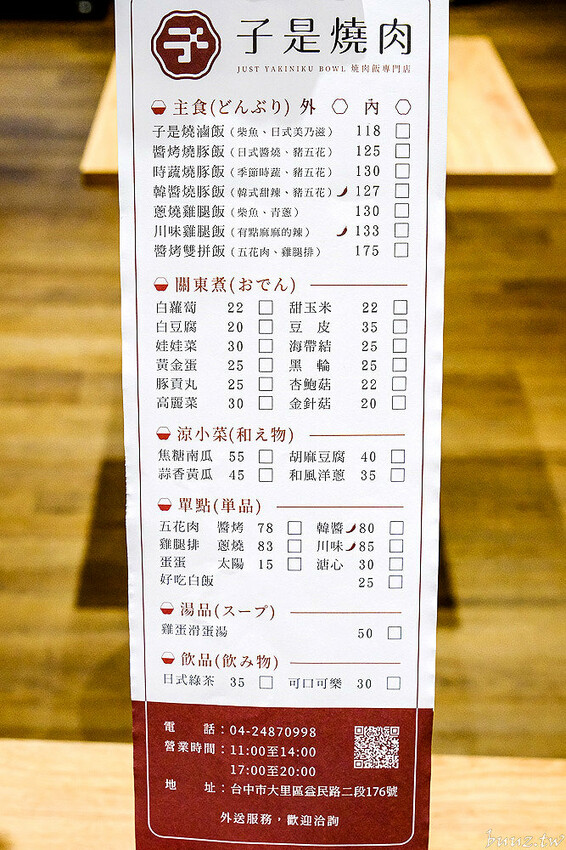 子是燒肉
JUST YAKINIKU BOWL 燒肉飯專門店
主食(どんぶり) 外 內
子是燒滷飯(柴魚、日式美乃滋) 118
醬烤燒豚飯(日式醬燒、豬五花) 125
時蔬燒豚飯(季節時蔬、豬五花) 130
韓醬燒豚飯(韓式甜辣、豬五花) 127
蔥燒雞腿飯(柴魚、青蔥) 130
川味雞腿飯(有點麻麻的辣) 133
醬烤雙拼飯(五花肉、雞腿排) 175
關東煮(おでん)
白蘿蔔 22 甜玉米 22
白豆腐 20 豆皮 35
娃娃菜 30 海帶結 25
黃金蛋 25 黑輪 25
豚貢丸 25 杏鮑菇 22
高麗菜 30 金針菇 20
涼小菜(和え物)
焦糖南瓜 55 胡麻豆腐 40
蒜香黃瓜 45 和風洋蔥 35
單點(単品)
五花肉 醬烤 78 韓醬 80
雞腿排 蔥燒 83 川味 85
蛋蛋 太陽 15 溏心 30
好吃白飯 25
湯品(スープ)
雞蛋滑蛋湯 50
飲品(飲み物)
日式綠茶 35 可口可樂 30
電話：04-24870998
營業時間：11:00至14:00
17:00至20:00
地址：台中市大里區益民路二段176號
外送服務，歡迎洽詢
buuz.tw